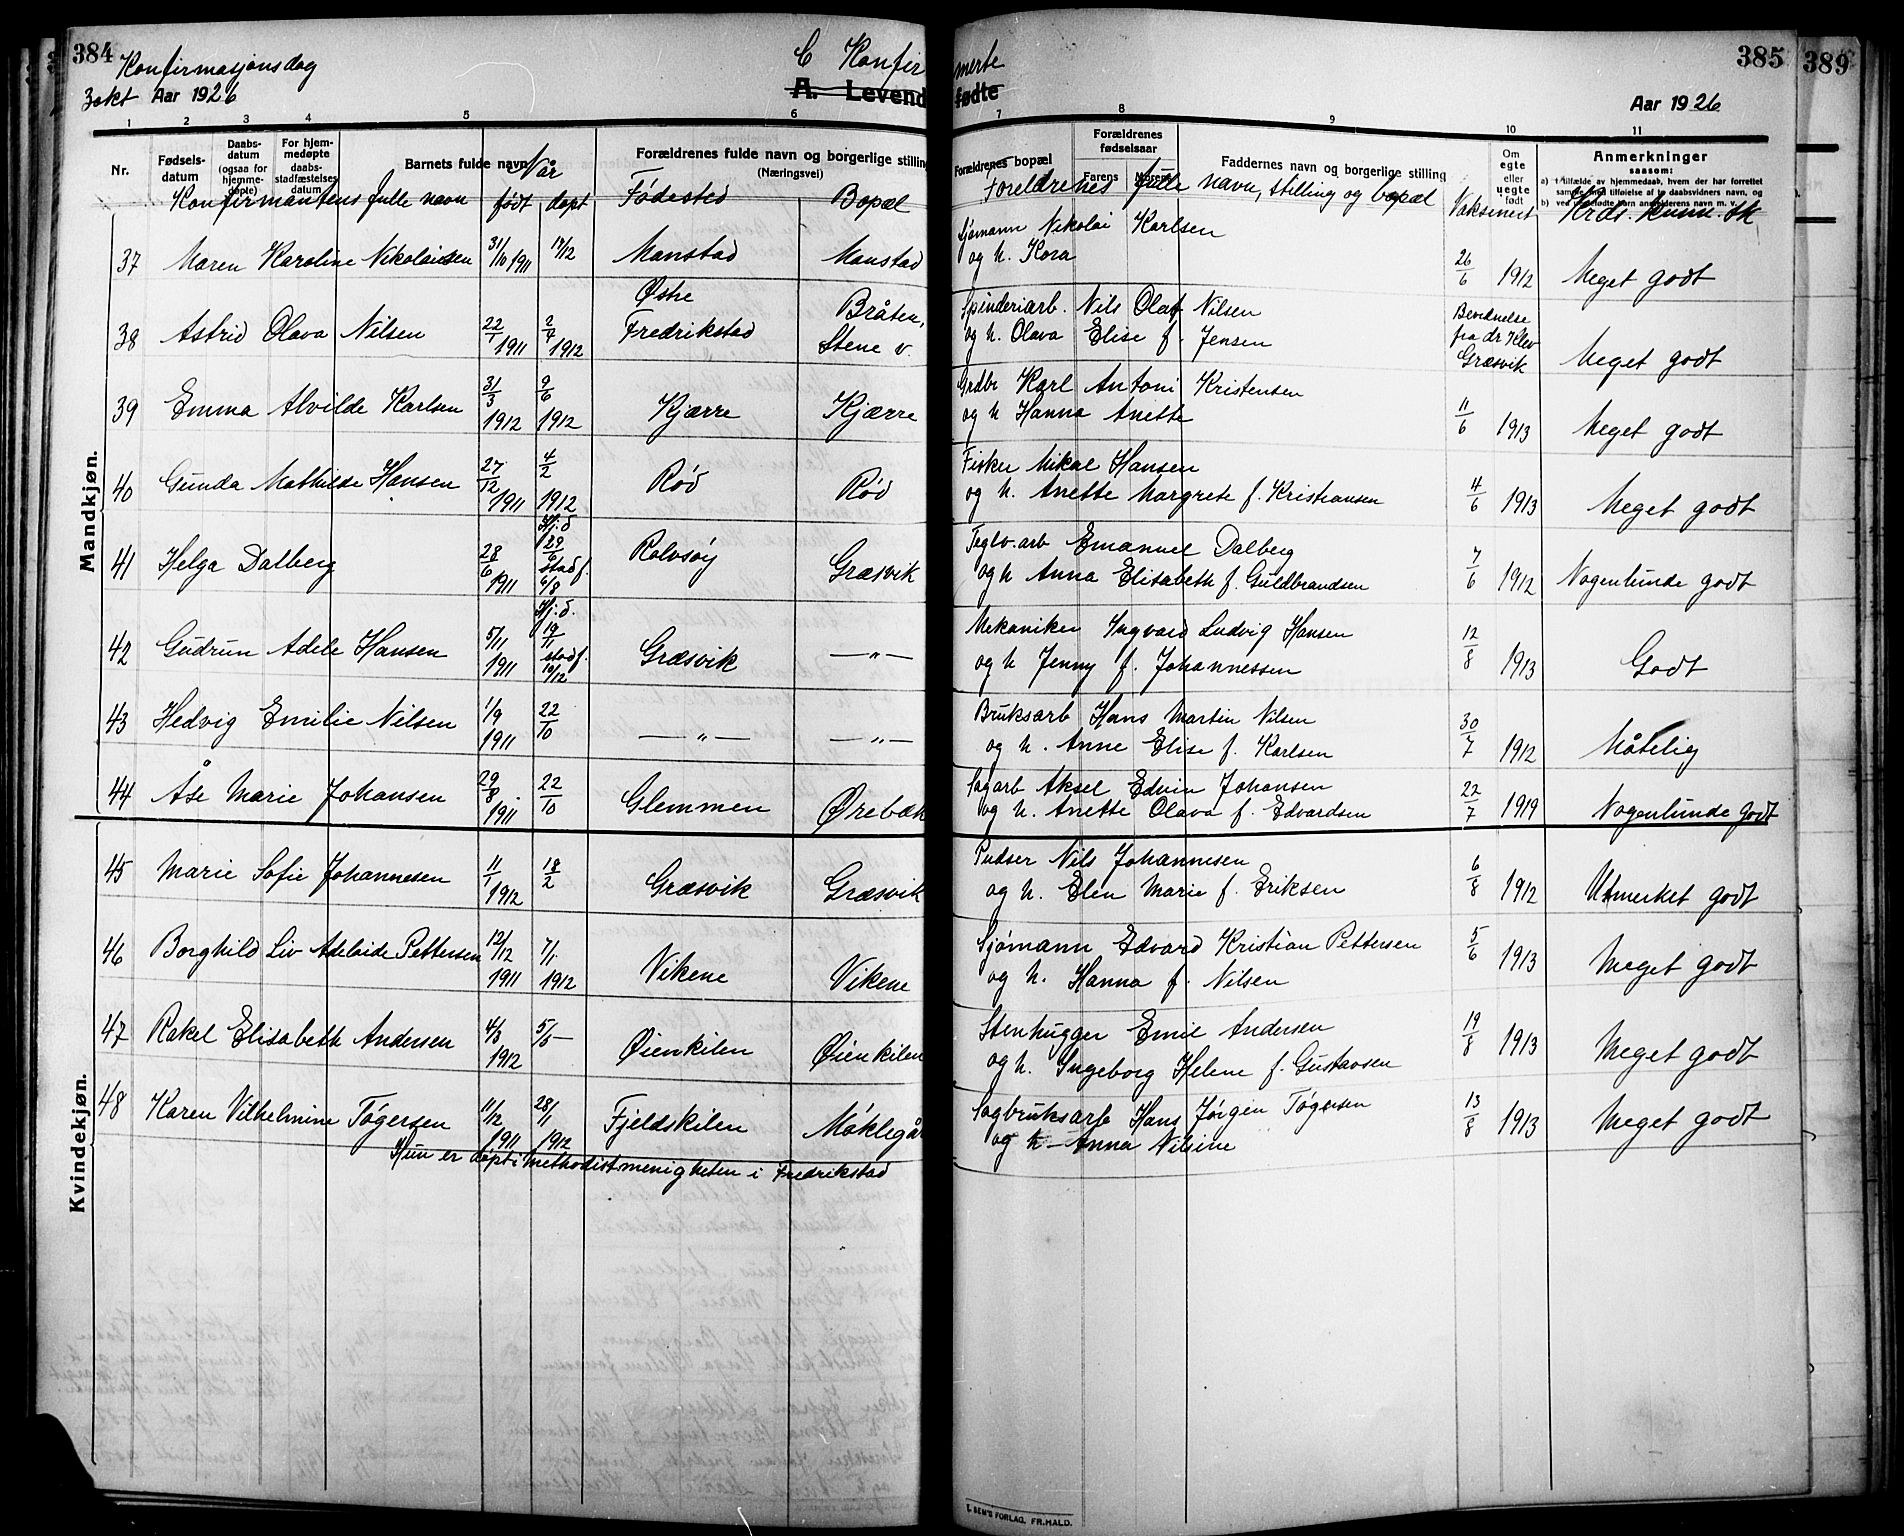 384
Konfirmasjonsdag
3 okt Aar 1926
C Konfirmerte
A. Levendefødte
385
389
Aar 1926
1 2 3 4 5 6 7 8 9 10 11
Nr.
Fødsels-datum
Daabs-datum (ogsaa for hjemme-døpte)
For hjem-medøpte daabs-stadfæstelses datum
Barnets fulde navn
Når
Forældrenes fulde navn og borgerlige stilling
(Næringsvei)
Forældrenes bopæl
Forældrenes fødselsaar
Farens Morens
Faddernes navn og borgerlige stilling
Om egte eller uegte født
Anmerkninger
saasom:
a) i tilfælde av hjemmedaab, hvem der har forrettet
samme med tilføielse af to daabsvidners navn, og
Konfirmantens fulle navn født døpt Fødested Bopæl
Foreldrenes fulle navn, stilling og bopæl Vaksinert Krds. kunnsk
Mandkjøn.
37 Maren Karoline Nikolaisen 31/10 1911 17/12 Manstad Manstad
Sjømann Nikolai Karlsen
og h. Kora 26/6 1912 Meget godt
38 Astrid Olava Nilsen 22/7 1911 2/7 1912 Østre Fredrikstad Bråten, Stene v.
Spinderiarb. Nils Olaf Nilsen
og h. Olava Elise f. Jensen Bevidnelse fra dr Klev Græsvik Meget godt
39 Emma Alvilde Karlsen 31/3 1912 9/6 1912 Kjærre Kjærre
Grdbr Karl Antoni Kristensen
og h Hanna Anette 11/6 1913 Meget godt
40 Gunda Mathilde Hansen 27/12 1911 4/2 1912 Rød Rød
Fisker Mikal Hansen
og h. Anette Margrete f. Kristiansen 4/6 1913 Meget godt
41 Helga Dalberg 28/6 1911 Hj.d 29/6 stadf. 6/8 Rolvsøy Græsvik
Teglv.arb Emanuel Dalberg
og h Anna Elisabeth f. Guldbrandsen 7/6 1912 Nogenlunde godt
42 Gudrun Adele Hansen 5/11 1911 Hj.d. 19/11 stadf. 10/12 Græsvik —"—
Mekaniker Ingvard Ludvig Hansen
og h Jenny f. Johannessen 12/8 1913 Godt
43 Hedvig Emilie Nilsen 1/9 1911 22/10 —"— —"—
Bruksarb Hans Martin Nilsen
og h. Anne Elise f. Karlsen 30/7 1912 Måtelig
44 Åse Marie Johansen 29/8 1911 22/10 Glemmen Ørebæk
Sagarb Aksel Edvin Johansen
og h. Anette Olava f. Edvardsen 22/7 1919 Nogenlunde godt
45 Marie Sofie Johannesen 11/1 1912 18/2 Græsvik Græsvik
Pudser Nils Johannesen
og h. Elen Marie f. Eriksen 6/8 1912 Utmerket godt
46 Borghild Liv Adelaide Pettersen 12/12 1911 7/1 1912 Vikene Vikene
Sjømann Edvard Kristian Pettersen
og h. Hanna f. Nilsen 5/6 1913 Meget godt
Kvindekjøn.
47 Rakel Elisabeth Andersen 4/3 1912 5/5 — Øienkilen Øienkilen
Stenhugger Emil Andersen
og h. Ingeborg Helene f. Gustavsen 19/8 1913 Meget godt
48 Karen Vilhelmine Tøgersen 11/12 1911 28/1 1912 Fjeldskilen Møklegår
Sagbruksarb Hans Jørgen Tøgersen
og h Anna Nilsine 13/8 1913 Meget godt
Hun er døpt i methodistmenigheten i Fredrikstad
E. SEM'S FORLAG, FR.HALD.